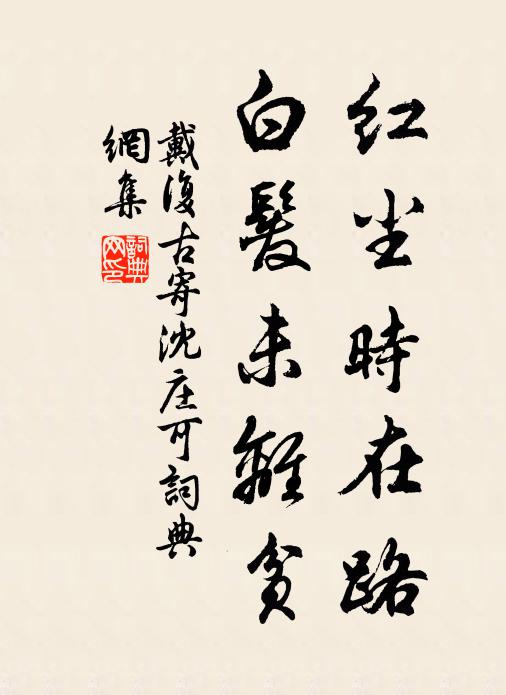 红尘時在路
白髮未離貧
戴復古寄沈庄可詞典
網集
詞典
网印